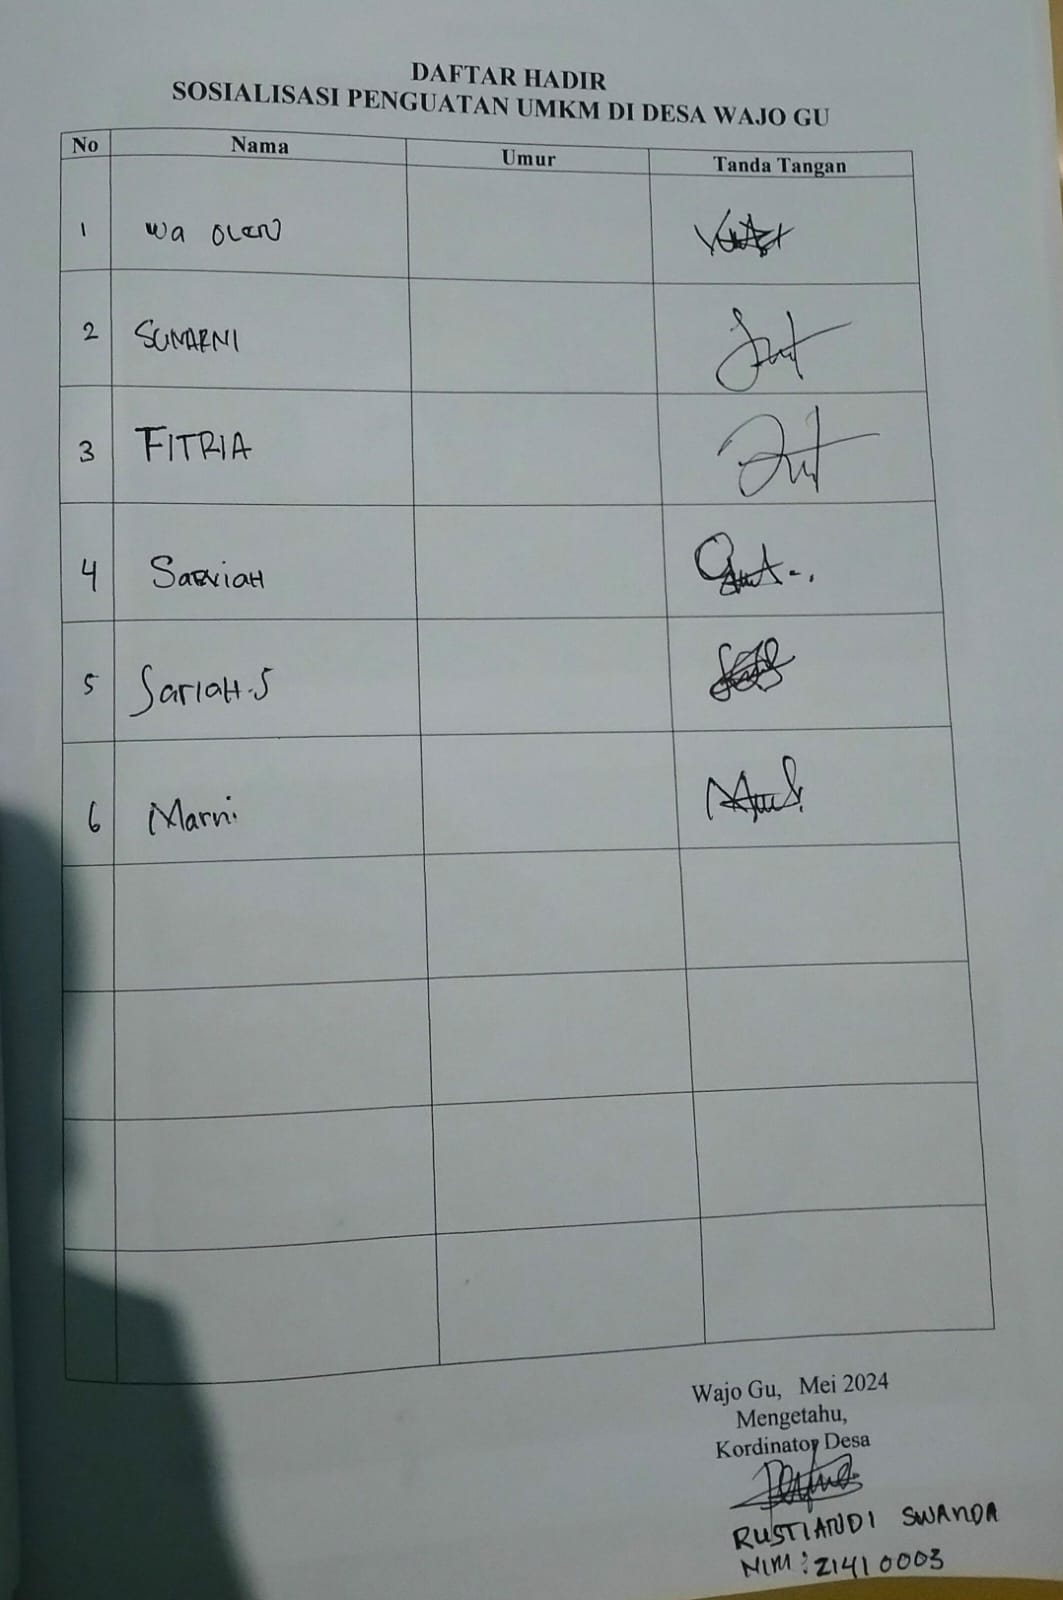 DAFTAR HADIR
SOSIALISASI PENGUATAN UMKM DI DESA WAJO GU
No Nama Umur Tanda Tangan
1 Wa OLEN
2 SUNARNI
3 FITRIA
4
5 SARIAH.S
6 Marni
Wajo Gu, Mei 2024
Mengetahu,
Kordinator Desa
RUSTIANDI SWANDA
NIM : 21410003